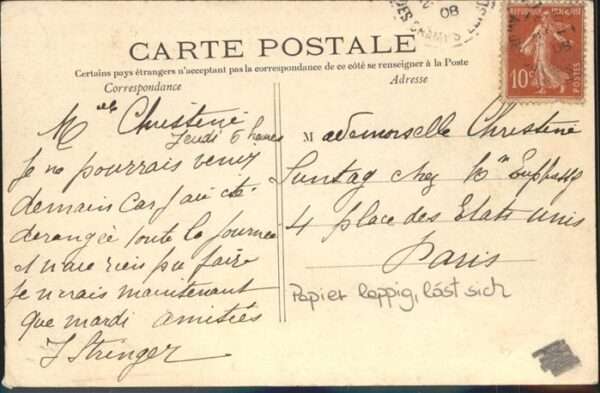 08
DES CHAMPS
CARTE POSTALE
Certains pays étrangers n'acceptant pas la correspondance de ce côté se renseigner à la Poste
Correspondance
Adresse
10c
Melle Christine
Jeudi 6 heures
Je ne pourrais venir
demain car j'ai été
derangée toute la journée
et n'aie rien pu faire
Je n'irais maintenant
que mardi amitiés
J Stringer
Mademoiselle Christine
Suntag chez
4 place des Etats Unis
Paris
Papier lappig, löst sich